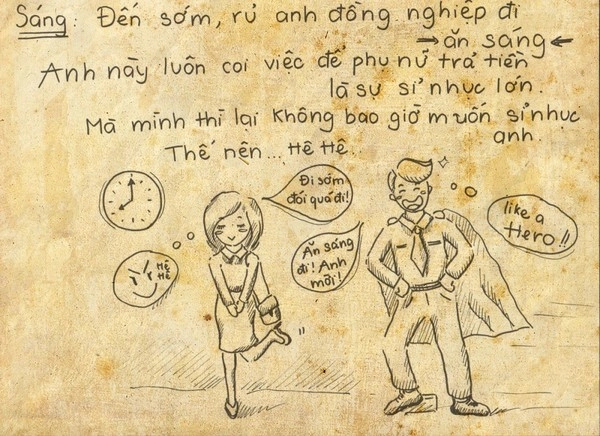 Sáng: Đến sớm, rủ anh đồng nghiệp đi
→ ăn sáng ←
Anh này luôn coi việc để phụ nữ trả tiền
là sự sỉ nhục lớn.
Mà mình thì lại không bao giờ muốn sỉ nhục
anh.
Thế nên... Hê Hê
Đi sớm
đói quá đi!
Ăn sáng
đi! Anh
mời!
like a
Hero!!
Hê
Hê